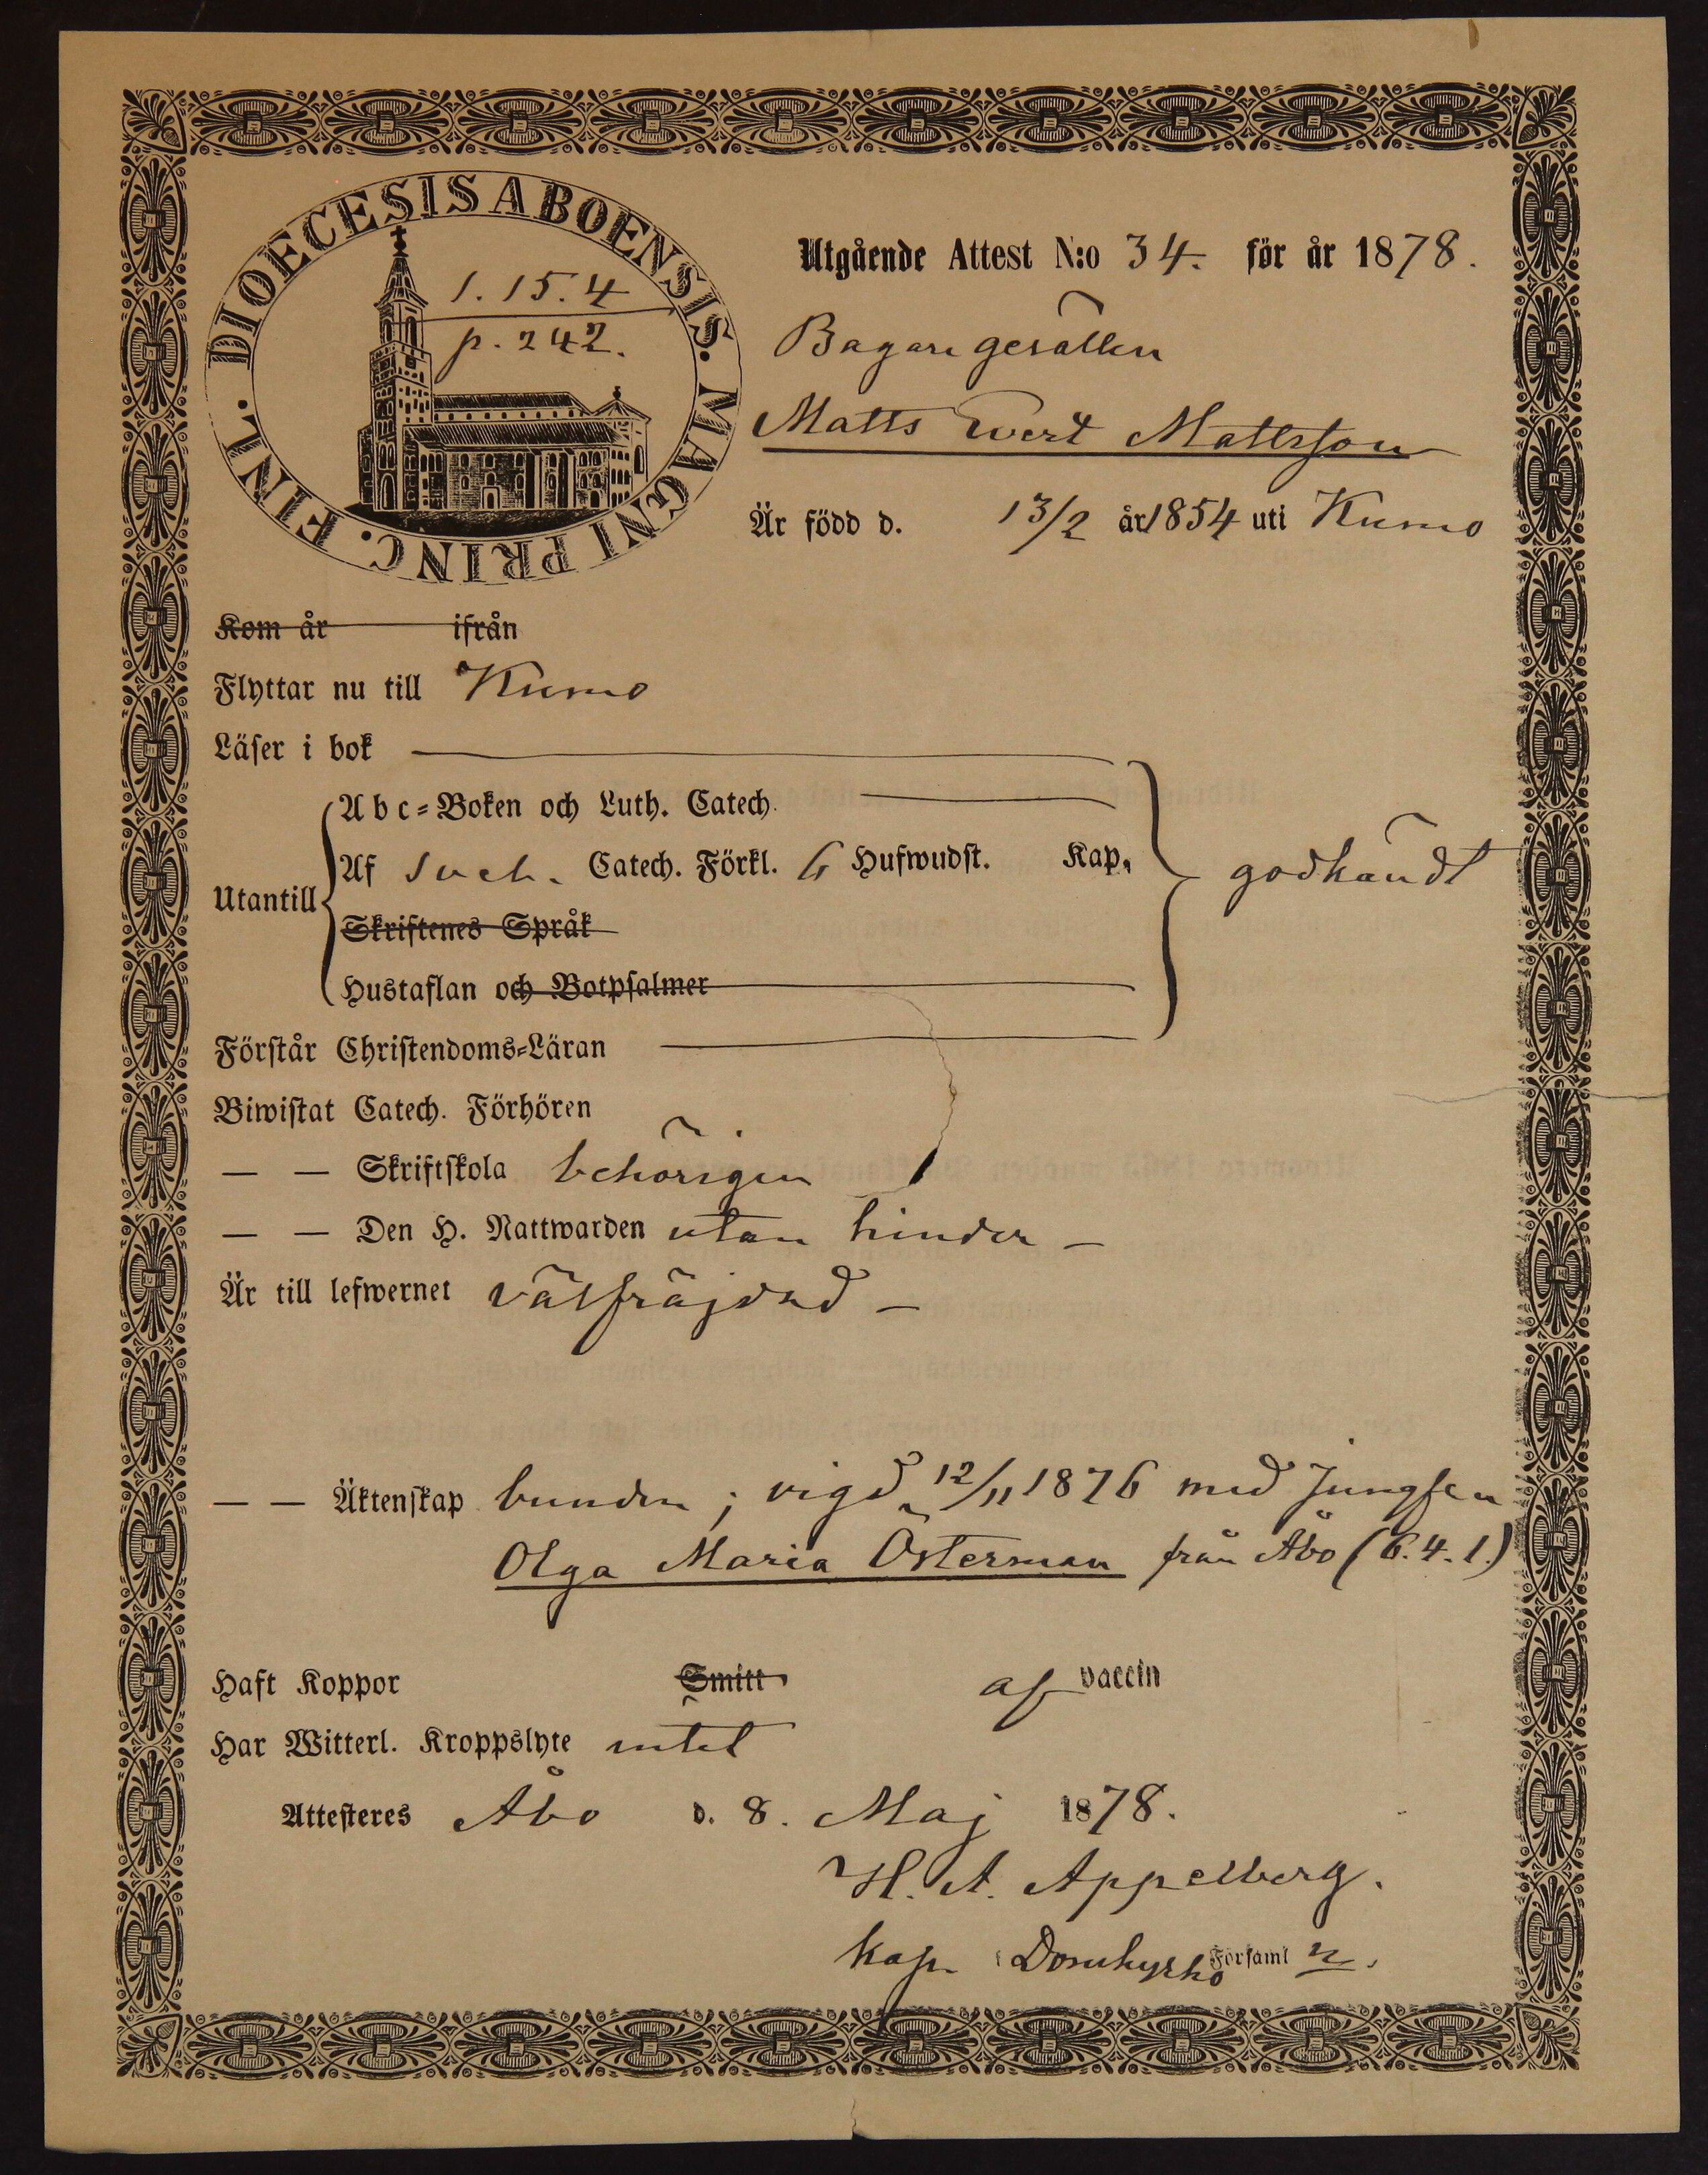 DIOECESIS ABOENSIS. MAGNI PRINC. FINL.
1. 15. 4
p. 242.
Utgående Attest N:o 34. för år 1878.
Bagaregesällen
Matts Evert Mattsson
Är född d. 13/2 år 1854 uti Kumo
Kom år ifrån
Flyttar nu till Kumo
Läser i bok
Utantill
Abc-Boken och Luth. Catech.
Af Sveb. Catech. Förkl. 6 Hufwudst. Kap.
godkändt
Skriftenes Språk
Hustaflan och Botpsalmer
Förstår Christendoms-Läran
Biwistat Catech. Förhören
— — Skriftskola behörigen
— — Den H. Nattwarden utan hinder —
Är till lefwernet välfräjdad —
— — Äktenskap bunden; vigd 12/11 1876 med Jungfrun
Olga Maria Österman från Åbo (6. 4. 1.)
Haft Koppor Smitt af vaccin
Har Witterl. Kroppslyte intet
Attesteres Åbo d. 8. Maj 1878.
H. A. Appelberg.
Kap. i Domkyrko Församl n.